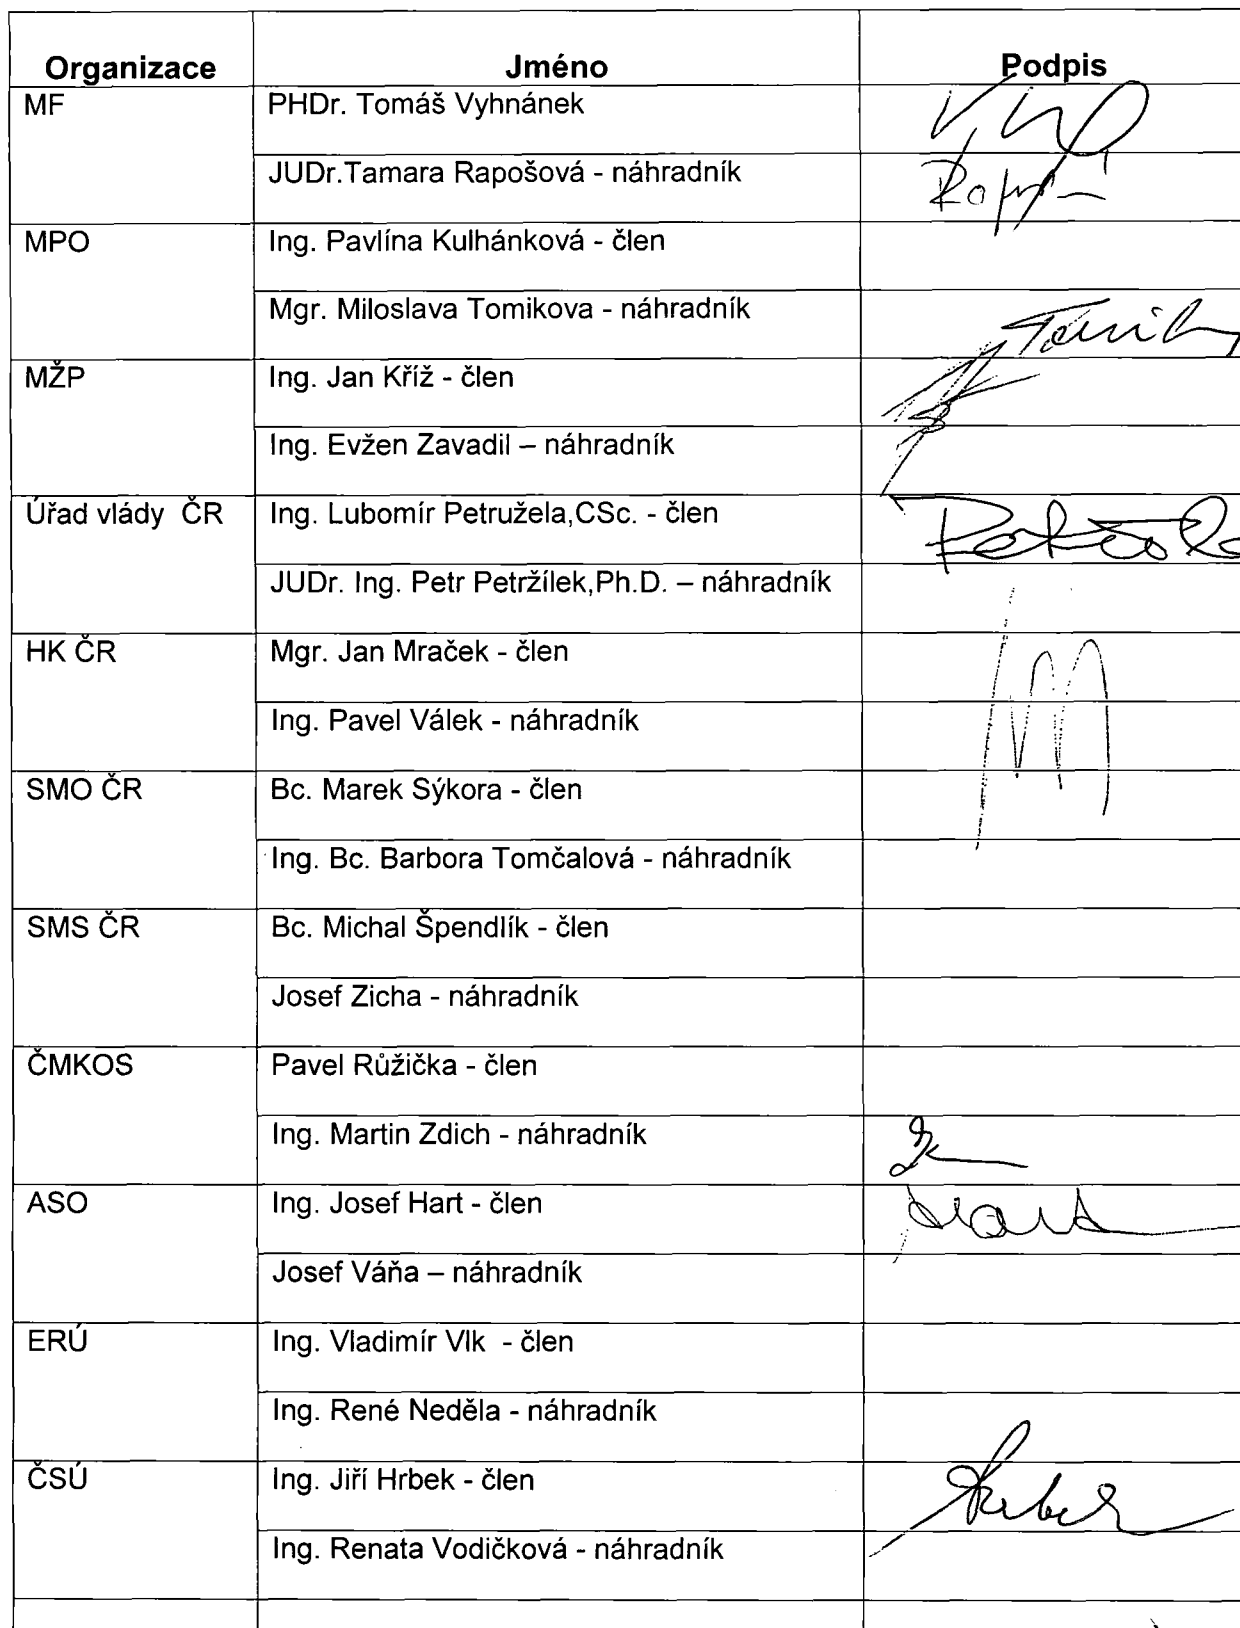 Organizace Jméno Podpis
MF PHDr. Tomáš Vyhnánek
JUDr.Tamara Rapošová - náhradník
MPO Ing. Pavlína Kulhánková - člen
Mgr. Miloslava Tomikova - náhradník
MŽP Ing. Jan Kříž - člen
Ing. Evžen Zavadil – náhradník
Úřad vlády ČR Ing. Lubomír Petružela,CSc. - člen
JUDr. Ing. Petr Petržílek,Ph.D. – náhradník
HK ČR Mgr. Jan Mraček - člen
Ing. Pavel Válek - náhradník
SMO ČR Bc. Marek Sýkora - člen
Ing. Bc. Barbora Tomčalová - náhradník
SMS ČR Bc. Michal Špendlík - člen
Josef Zicha - náhradník
ČMKOS Pavel Růžička - člen
Ing. Martin Zdich - náhradník
ASO Ing. Josef Hart - člen
Josef Váňa – náhradník
ERÚ Ing. Vladimír Vlk - člen
Ing. René Neděla - náhradník
ČSÚ Ing. Jiří Hrbek - člen
Ing. Renata Vodičková - náhradník